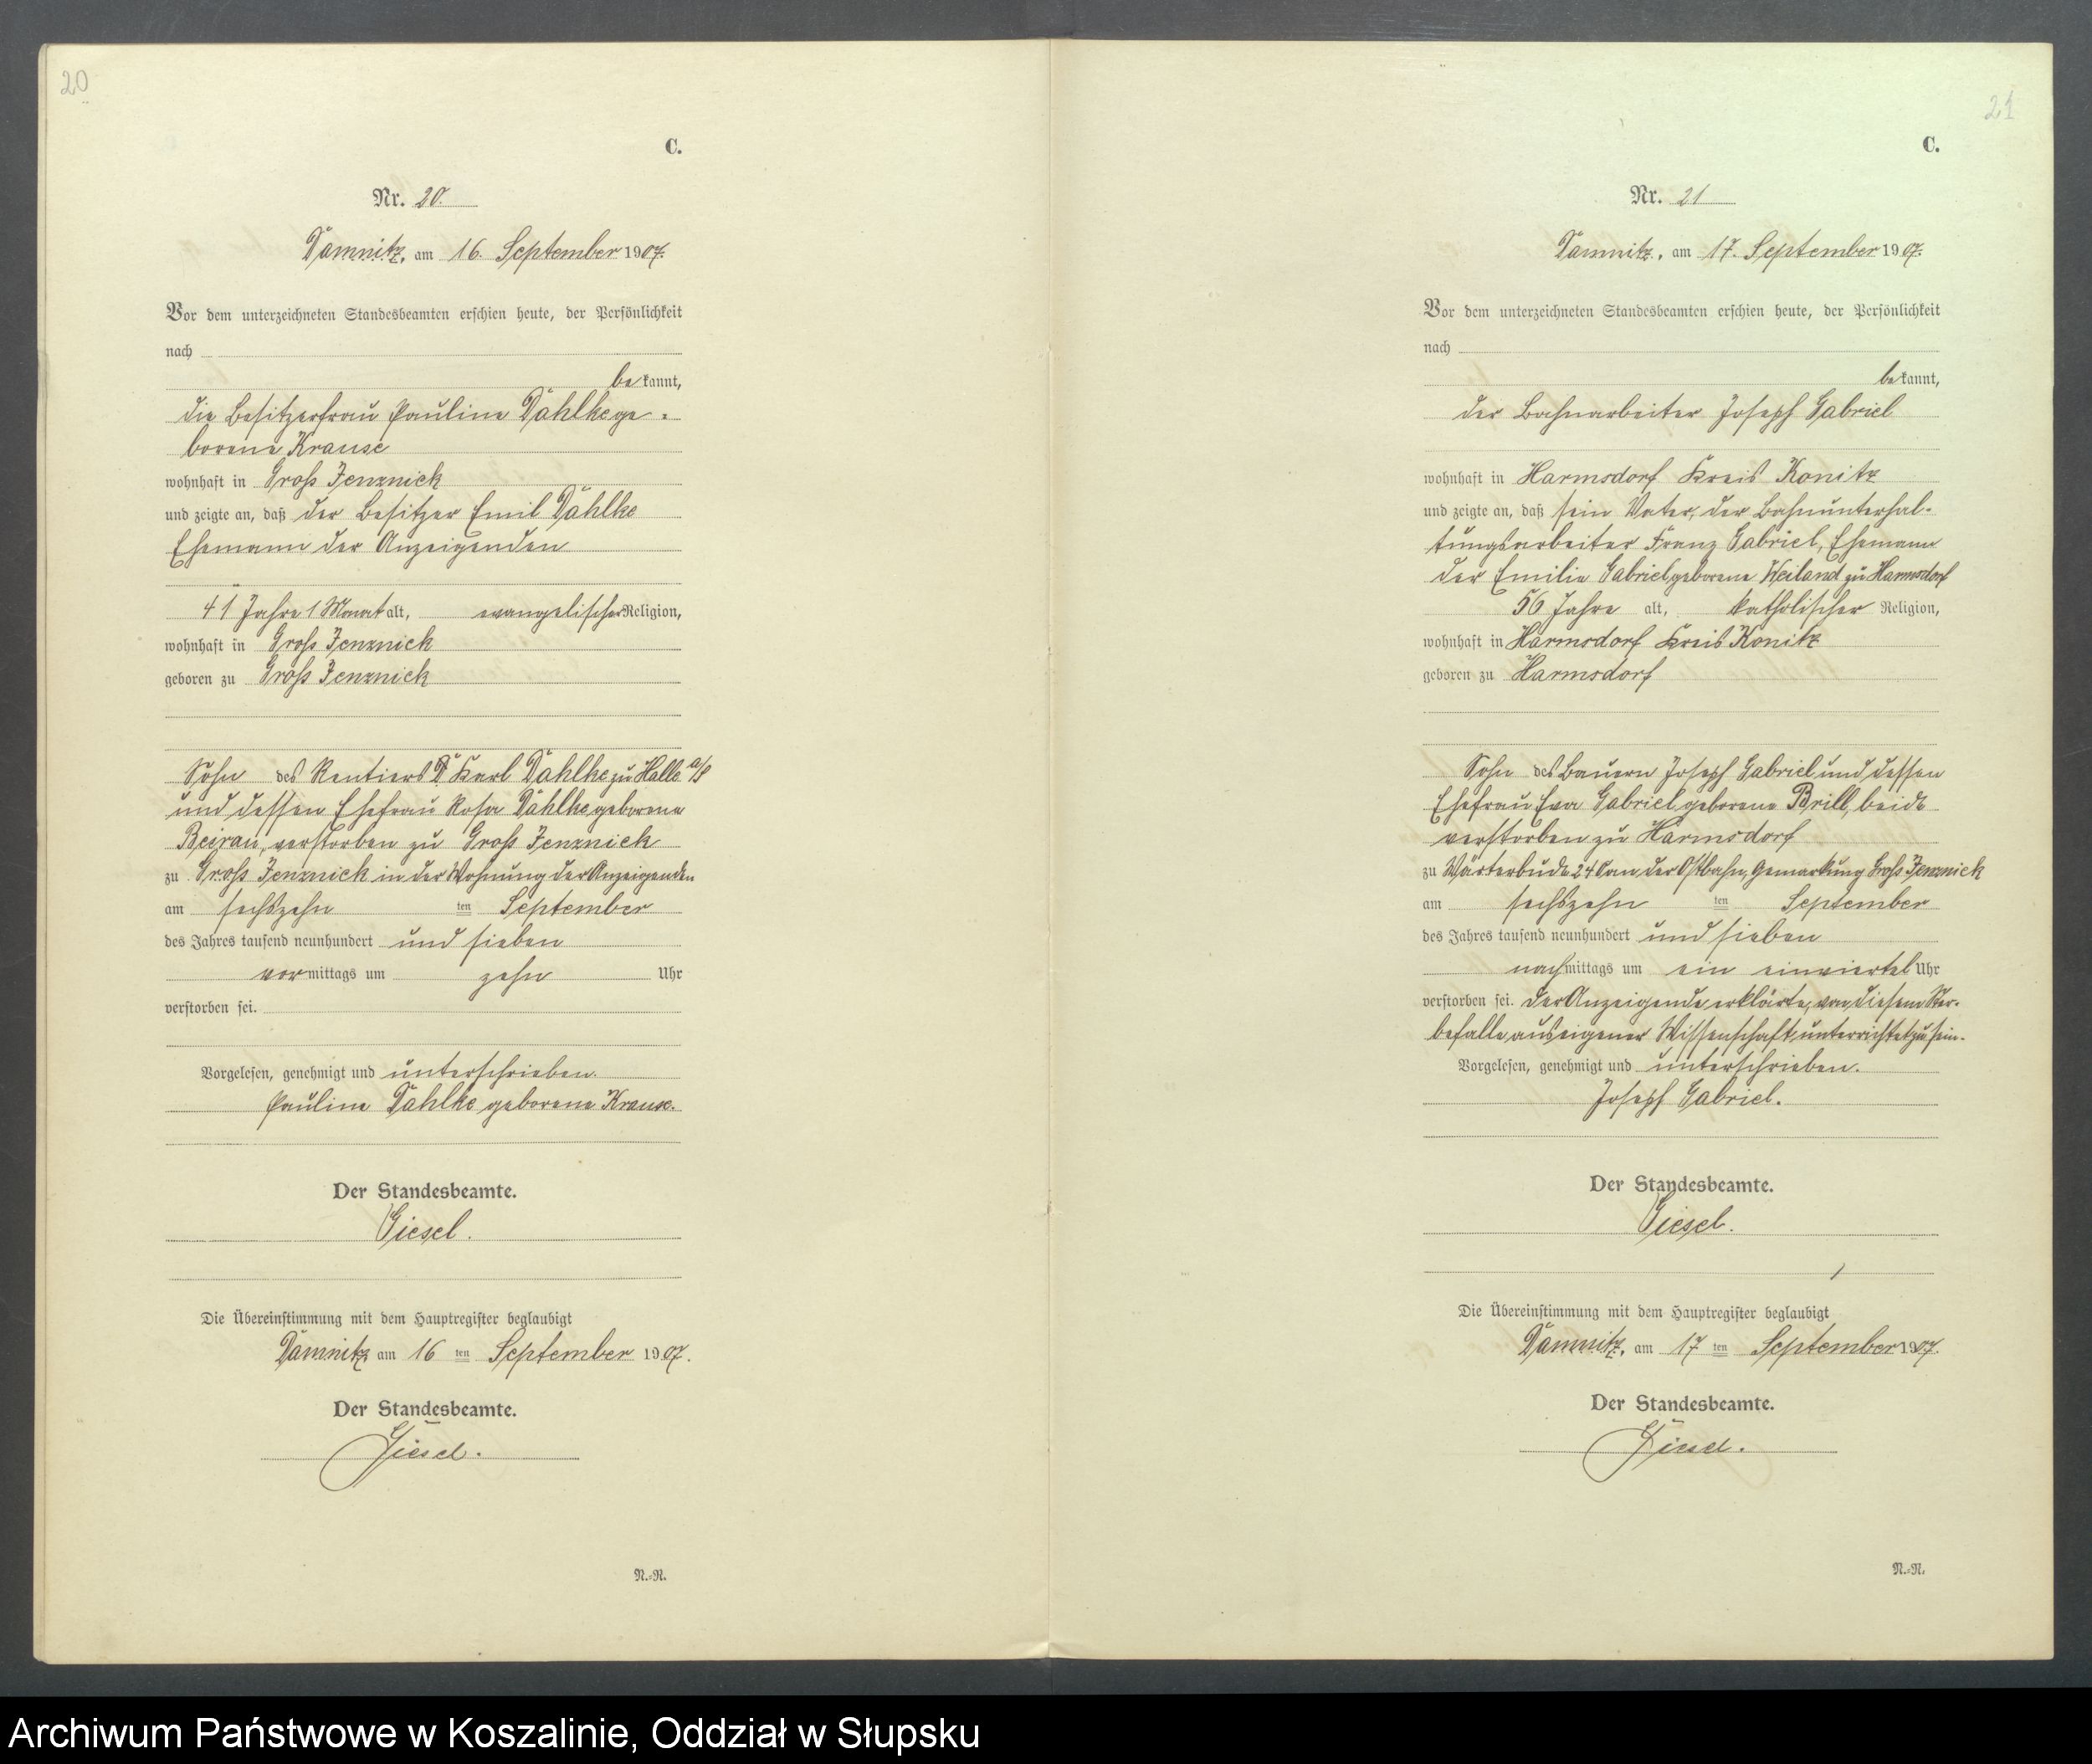 20
C.
Nr. 20.
Damnitz, am 16. September 1907.
Vor dem unterzeichneten Standesbeamten erschien heute, der Persönlichkeit
nach
bekannt,
die Besitzerfrau Pauline Dahlke ge=
borene Krause
wohnhaft in Groß Jenznick
und zeigte an, daß der Besitzer Emil Dahlke
Ehemann der Anzeigenden
41 Jahre 1 Monat alt, evangelischer Religion,
wohnhaft in Groß Jenznick
geboren zu Groß Jenznick
Sohn des Rentiers D Karl Dahlke zu Halle a/S
und dessen Ehefrau Rosa Dahlke geborene
Beirau, verstorben zu Groß Jenznick
zu Groß Jenznick in der Wohnung der Anzeigenden
am sechszehn ten September
des Jahres tausend neunhundert und sieben
vormittags um zehn Uhr
verstorben sei.
Vorgelesen, genehmigt und unterschrieben.
Pauline Dahlke geborene Krause.
Der Standesbeamte.
Giesel.
Die Übereinstimmung mit dem Hauptregister beglaubigt
Damnitz, am 16 ten September 1907.
Der Standesbeamte.
Giesel.
N.=N.
21
C.
Nr. 21
Damnitz, am 17. September 1907.
Vor dem unterzeichneten Standesbeamten erschien heute, der Persönlichkeit
nach
bekannt,
der Bahnarbeiter Joseph Gabriel
wohnhaft in Harmsdorf Kreis Konitz
und zeigte an, daß sein Vater, der Bahnunterhal-
tungsarbeiter Franz Gabriel, Ehemann
der Emilie Gabriel geborene Weiland zu Harmsdorf
56 Jahre alt, katholischer Religion,
wohnhaft in Harmsdorf Kreis Konitz
geboren zu Harmsdorf
Sohn des Bauern Joseph Gabriel und dessen
Ehefrau Eva Gabriel geborene Brill, beide
verstorben zu Harmsdorf
zu Wärterbude 240 an der Ostbahn, Gemarkung Groß Jenznick
am sechszehn ten September
des Jahres tausend neunhundert und sieben
nachmittags um ein einviertel Uhr
verstorben sei. Der Anzeigende erklärte, von diesem Ster-
befalle aus eigener Wissenschaft unterrichtet zu sein.
Vorgelesen, genehmigt und unterschrieben.
Joseph Gabriel.
Der Standesbeamte.
Giesel.
Die Übereinstimmung mit dem Hauptregister beglaubigt
Damnitz, am 17 ten September 1907.
Der Standesbeamte.
Giesel.
N.=N.
Archiwum Państwowe w Koszalinie, Oddział w Słupsku